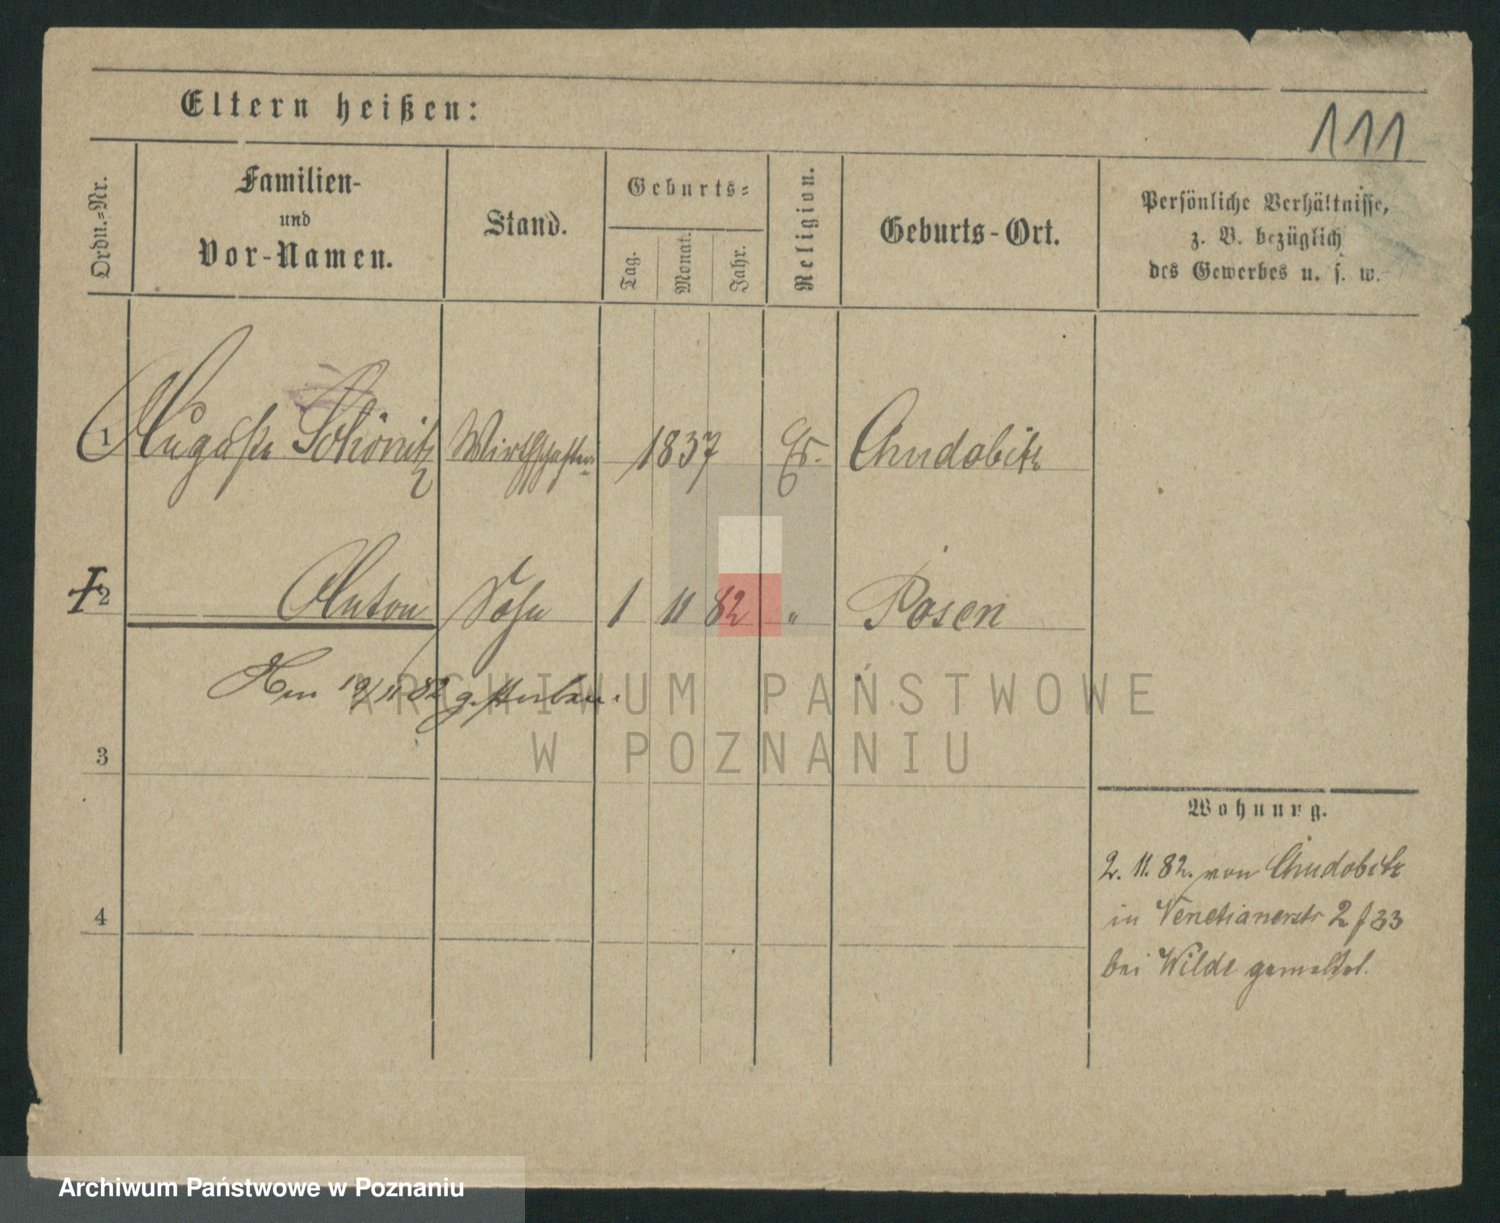 Eltern heißen:
111
Ordn.-Nr.
Familien-
und
Vor-Namen.
Stand.
Geburts-
Tag.
Monat.
Jahr.
Religion.
Geburts-Ort.
Persönliche Verhältnisse,
z. B. bezüglich
des Gewerbes u. s. w.
1 Schönitz 1837 Ev. Chudobitz
2 Anton Sohn 1 11 82 " Posen
Am 19/11 82 gestorben.
3
4
Wohnung.
2. 11. 82. von Chudobitz
in Venetianerstr 2 f 33
bei Wilde gemeldet.
ARCHIWUM PAŃSTWOWE
W POZNANIU
Archiwum Państwowe w Poznaniu